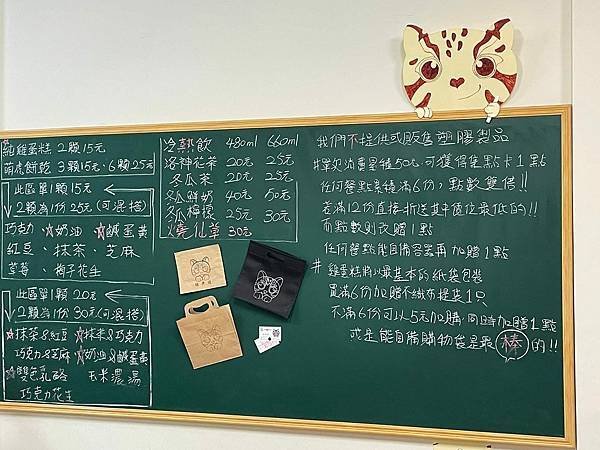 純雞蛋糕 2顆15元
萌虎餅乾 3顆15元、6顆25元
此區單1顆15元
2顆為1份 25元(可混搭)
巧克力、☆奶油、☆鹹蛋黃
紅豆、抹茶、芝麻
藍莓、梅子花生
此區單1顆 20元
2顆為1份 30元(可混搭)
☆抹茶&紅豆 ☆抹茶&巧克力
巧克力&芝麻 ☆奶油&鹹蛋黃
☆雙色乳酪 玉米濃湯
巧克力花生
冷熱飲 480ml 660ml
洛神花茶 20元 25元
冬瓜茶 20元 25元
冬瓜鮮奶 40元 50元
冬瓜檸檬 25元 30元
燒仙草 30元
我們不提供或販售塑膠製品
#單次消費累積50元可獲得集點卡1點
任何餐點累積滿6份,點數雙倍!!
若滿12份直接折送其中價位最低的!!
而點數則改贈1點
任何餐點能自備容器再加贈1點
#雞蛋糕將以最基本的紙袋包裝
買滿6份加贈不織布提袋1只
不滿6份可以5元加購,同時加贈1點
或是能自備購物袋是最棒的!!